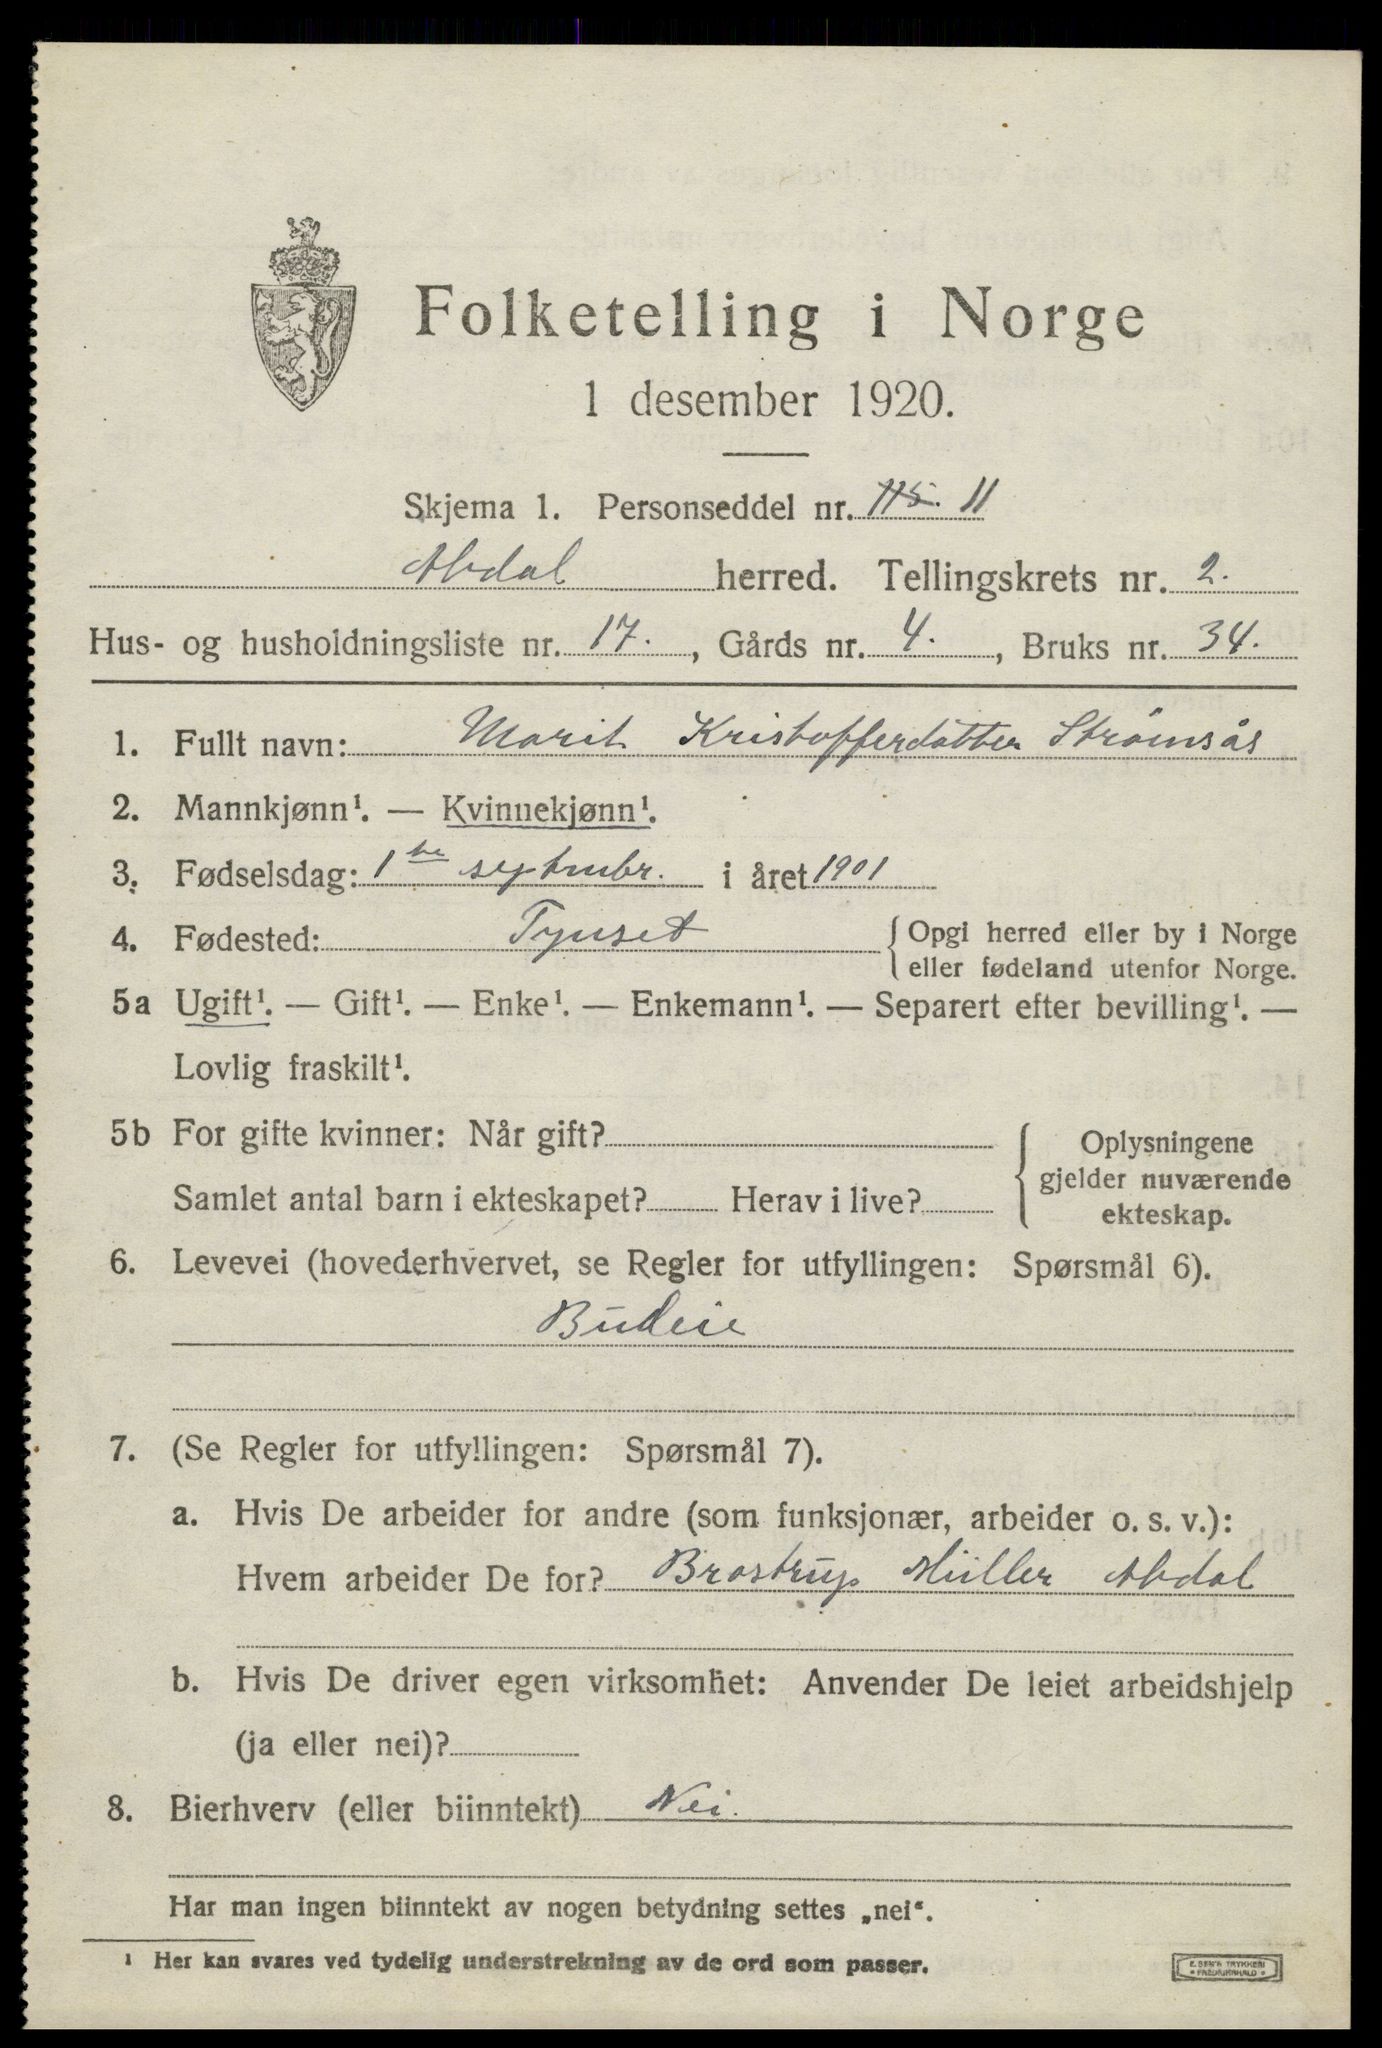 Folketelling i Norge
1 desember 1920.
Skjema 1. Personseddel nr. 115. 11
Alvdal herred. Tellingskrets nr. 2.
Hus- og husholdningsliste nr. 17., Gårds nr. 4., Bruks nr. 34.
1. Fullt navn: Marit Kristofferdatter Strømsås
2. Mannkjønn¹. — Kvinnekjønn¹.
3. Fødselsdag: 1ste septmbr. i året 1901
4. Fødested: Tynset {Opgi herred eller by i Norge
eller fødeland utenfor Norge.
5a Ugift¹. — Gift¹. — Enke¹. — Enkemann¹. — Separert efter bevilling¹. —
Lovlig fraskilt¹.
5b For gifte kvinner: Når gift? {Oplysningene
gjelder nuværende
Samlet antal barn i ekteskapet? Herav i live?
ekteskap.
6. Levevei (hovederhvervet, se Regler for utfyllingen: Spørsmål 6).
Budeie
7. (Se Regler for utfyllingen: Spørsmål 7).
a. Hvis De arbeider for andre (som funksjonær, arbeider o. s. v.):
Hvem arbeider De for? Brostrup Müller Alvdal
b. Hvis De driver egen virksomhet: Anvender De leiet arbeidshjelp
(ja eller nei)?
8. Bierhverv (eller biinntekt) Nei.
Har man ingen biinntekt av nogen betydning settes „nei“.
¹ Her kan svares ved tydelig understrekning av de ord som passer.